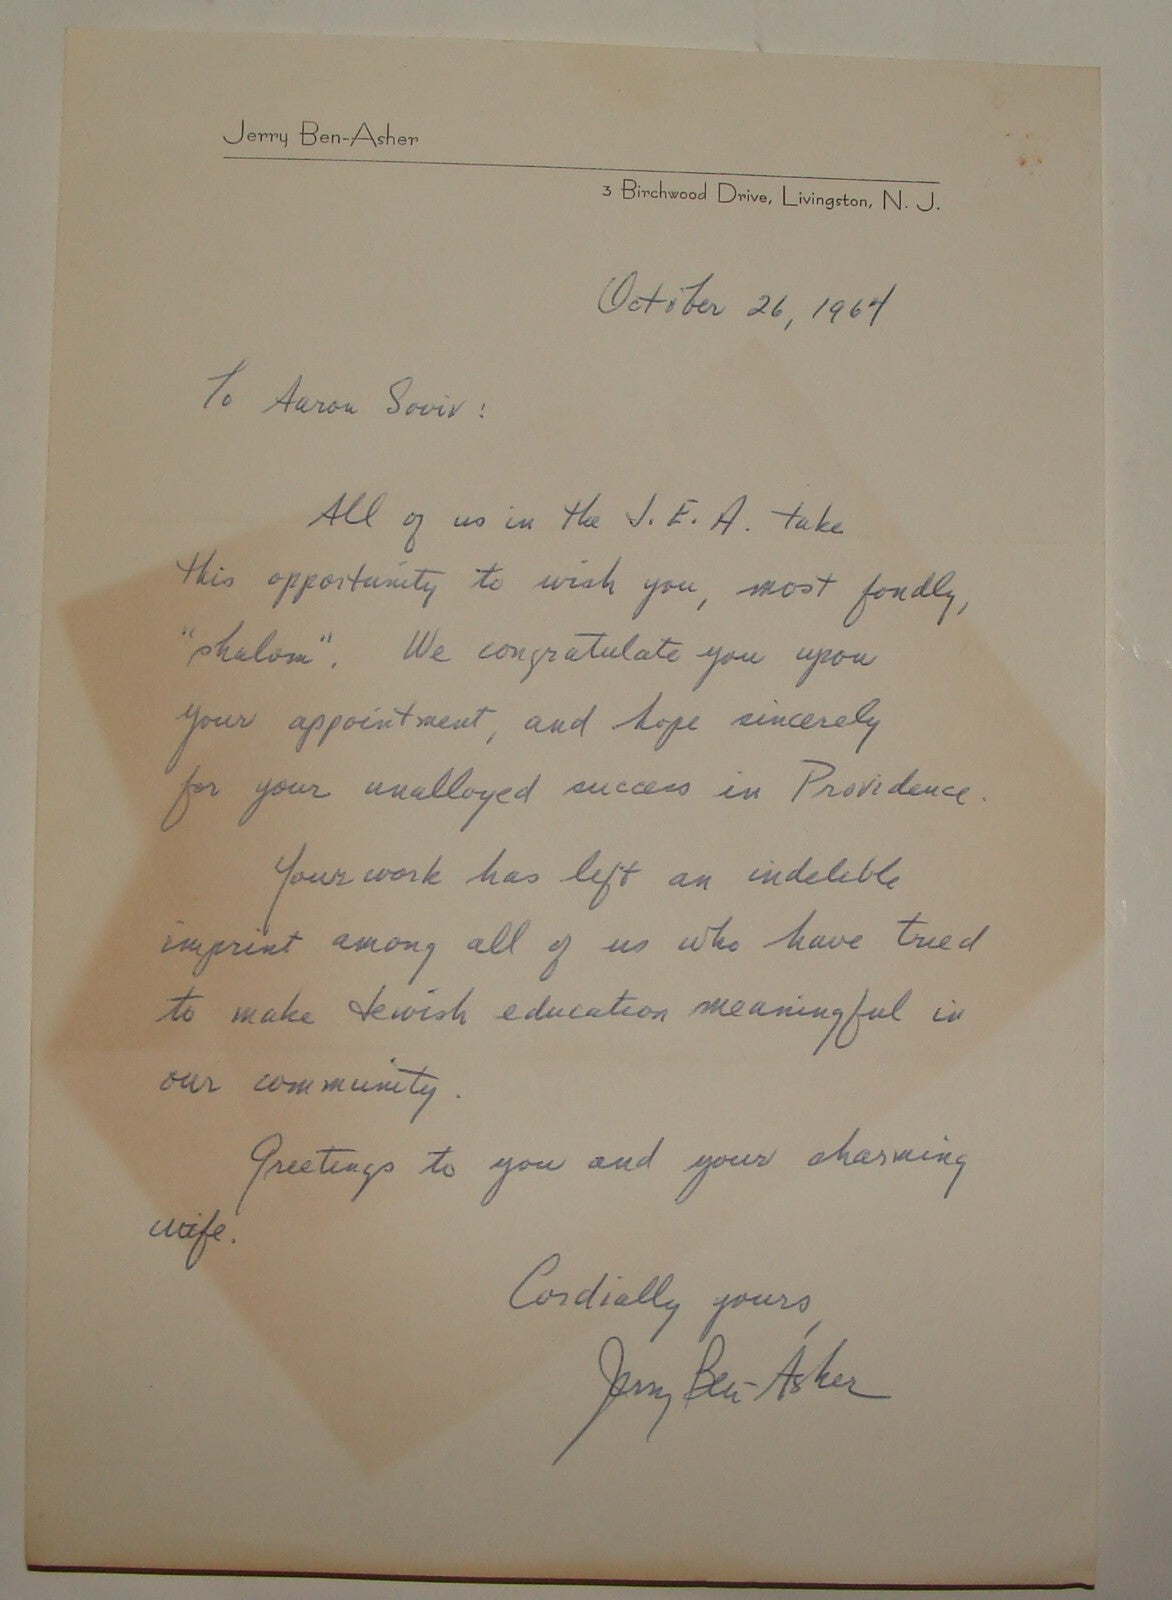 Jerry Ben-Asher
3 Birchwood Drive, Livingston, N. J.
October 26, 1964
To Aaron Soviv:
All of us in the J. E. A. take
this opportunity to wish you, most fondly,
"shalom". We congratulate you upon
your appointment, and hope sincerely
for your unalloyed success in Providence.
Your work has left an indelible
imprint among all of us who have tried
to make Jewish education meaningful in
our community.
Greetings to you and your charming
wife.
Cordially yours,
Jerry Ben-Asher